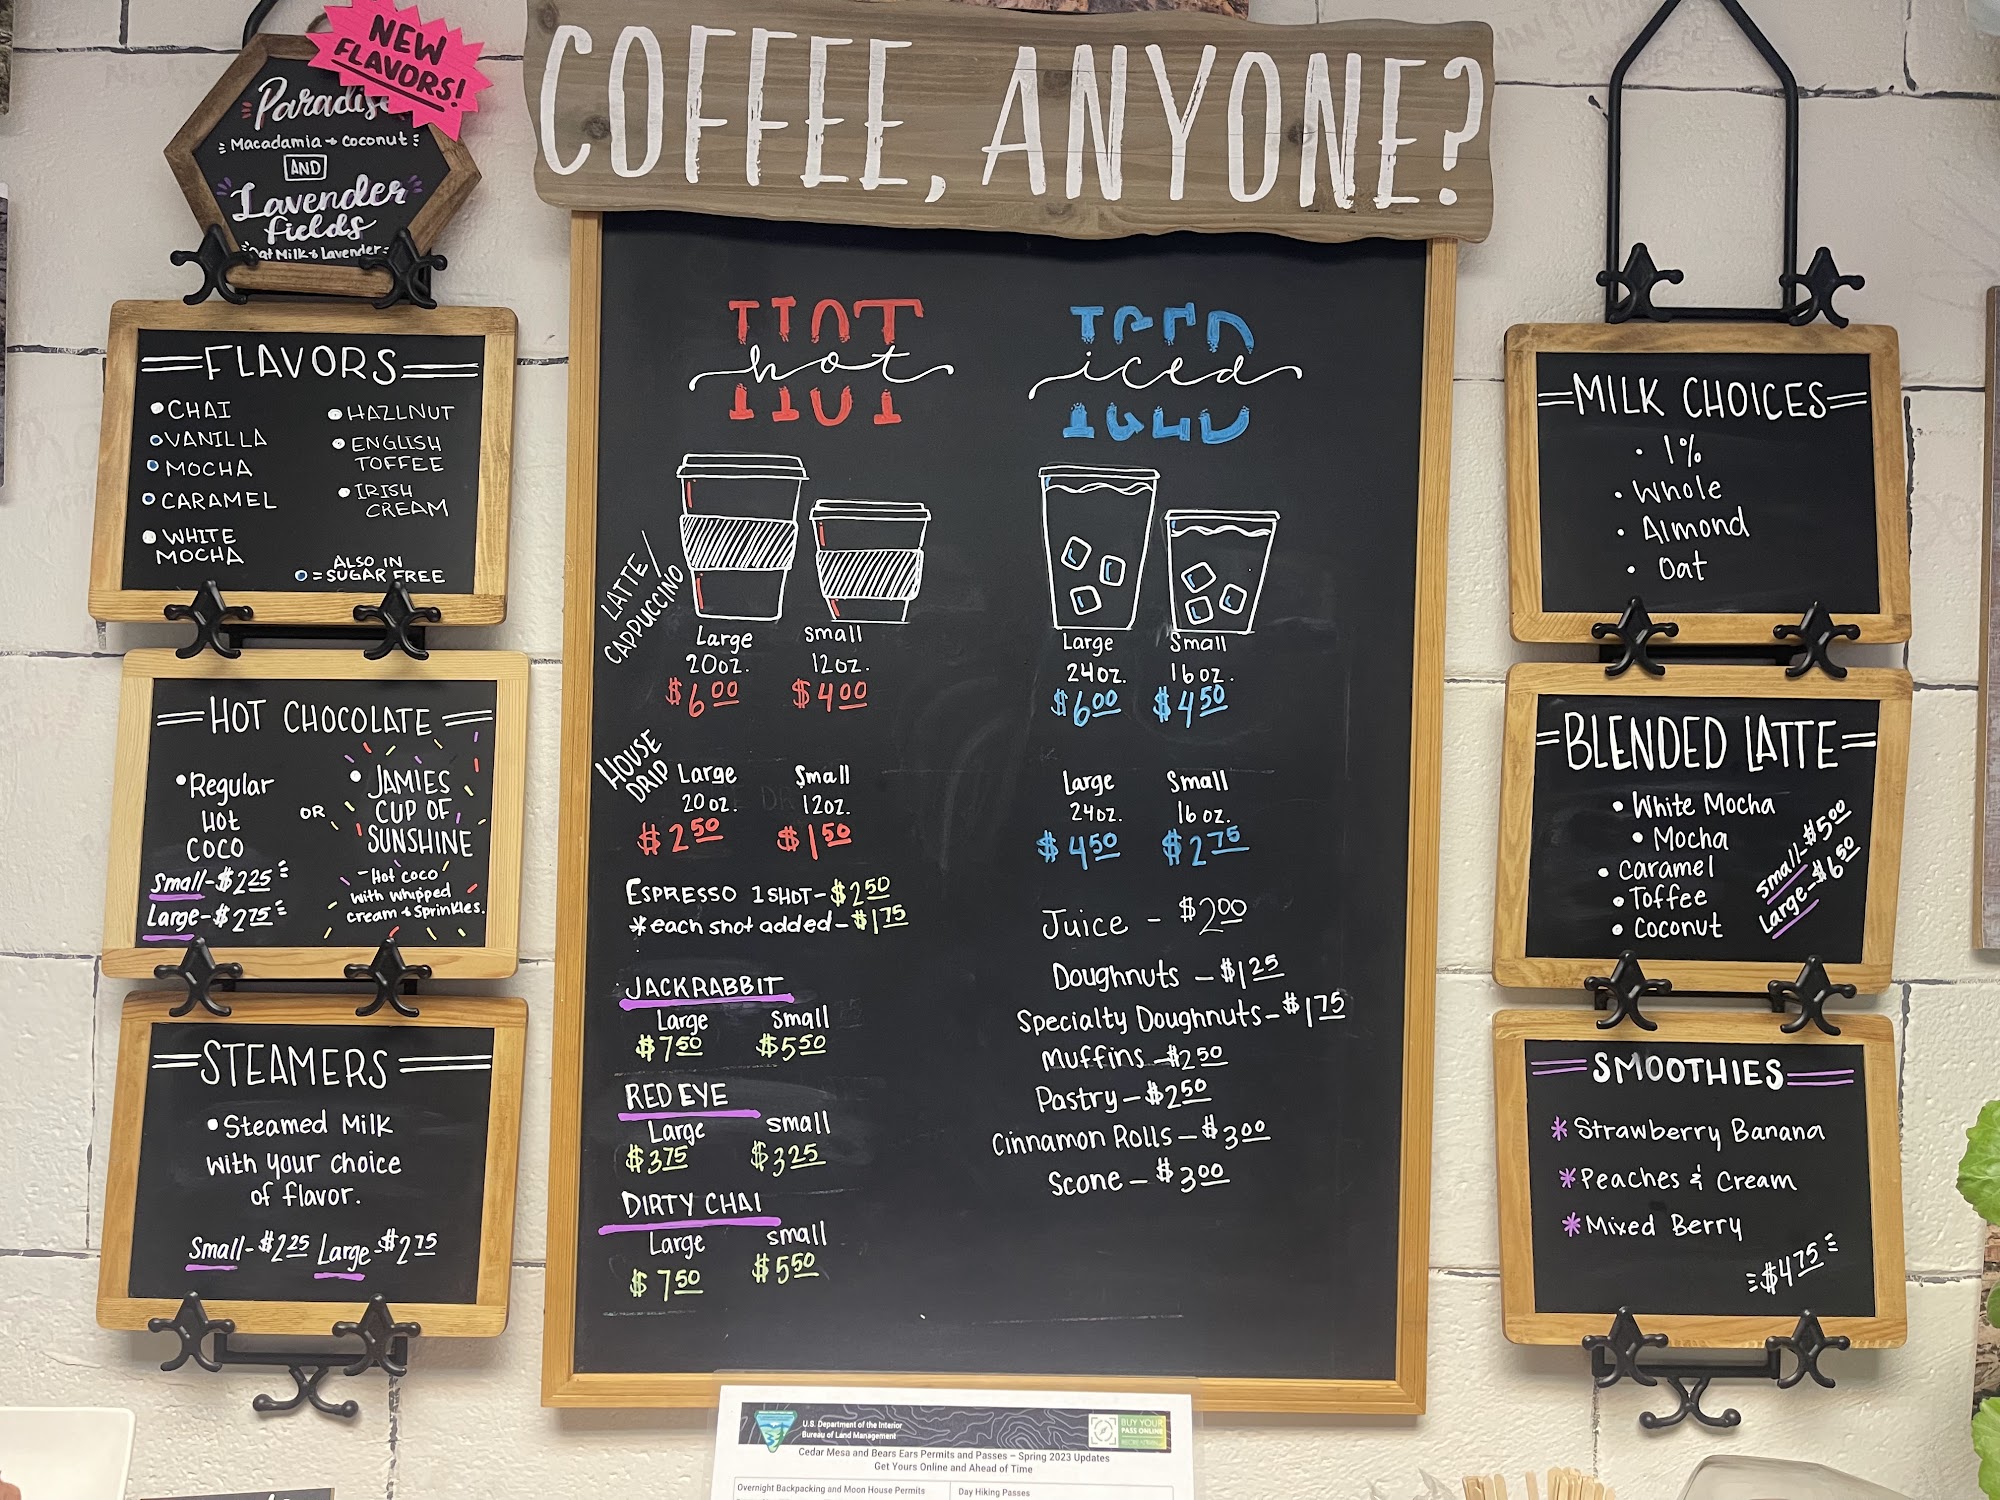 NEW
FLAVORS!
Paradise
Macadamia & Coconut
AND
Lavender
Fields
Oat Milk & Lavender
FLAVORS
CHAI
VANILLA
MOCHA
CARAMEL
WHITE
MOCHA
HAZLNUT
ENGLISH
TOFFEE
IRISH
CREAM
ALSO IN
= SUGAR FREE
HOT CHOCOLATE
• Regular
Hot
COCO
Small - $2.25
Large - $2.75
OR
• JAMIES
CUP OF
SUNSHINE
- Hot coco
with whipped
cream & Sprinkles.
STEAMERS
• Steamed Milk
with your choice
of flavor.
Small - $2.25 Large - $2.75
COFFEE, ANYONE?
HOT
hot
ICED
iced
LATTE /
CAPPUCCINO
Large
20oz.
$6.00
Small
12oz.
$4.00
Large
24oz.
$6.00
Small
16oz.
$4.50
HOUSE
DRIP
Large
20oz.
$2.50
Small
12oz.
$1.50
Large
24oz.
$4.50
Small
16oz.
$2.75
ESPRESSO 1 SHOT - $2.50
*each shot added - $1.75
JACKRABBIT
Large Small
$7.50 $5.50
RED EYE
Large Small
$3.75 $3.25
DIRTY CHAI
Large Small
$7.50 $5.50
Juice - $2.00
Doughnuts - $1.25
Specialty Doughnuts - $1.75
Muffins - $2.50
Pastry - $2.50
Cinnamon Rolls - $3.00
Scone - $3.00
MILK CHOICES
• 1%
• Whole
• Almond
• Oat
BLENDED LATTE
• White Mocha
• Mocha
• Caramel
• Toffee
• Coconut
Small - $5.00
Large - $6.50
SMOOTHIES
* Strawberry Banana
* Peaches & Cream
* Mixed Berry
$4.75
U.S. Department of the Interior
Bureau of Land Management
BUY YOUR
PASS ONLINE
Cedar Mesa and Bears Ears Permits and Passes – Spring 2023 Updates
Get Yours Online and Ahead of Time
Overnight Backpacking and Moon House Permits
Day Hiking Passes